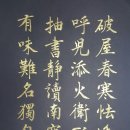 破屋春寒怯
呼兒添火衛
抽書靜讀南
有味難名獨